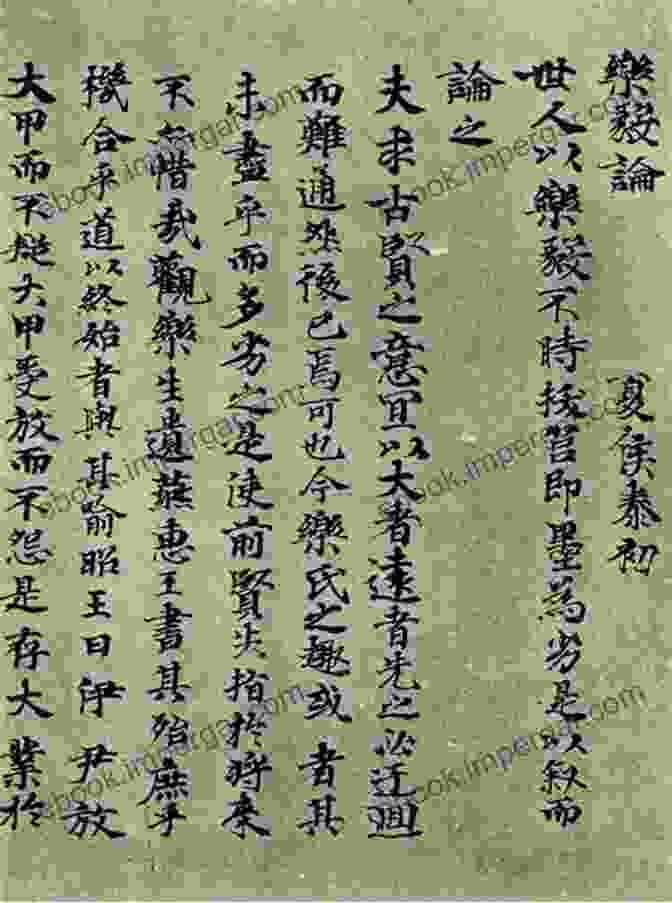 樂毅論 夏侯泰初
世人以樂毅不時拔莒即墨為劣是以叙而
論之
夫求古賢之意宜以大者遠者先之必迂迴
而難通然後已焉可也今樂氏之趣或者其
未盡乎而多劣之是使前賢失指於将来
不亦惜哉觀樂生遺燕惠王書其殆庶乎
機合乎道以終始者與其喻昭王曰伊尹放
大甲而不疑大甲受放而不怨是存大業於
ebook.impergar.com
ebook.impergar.com
ebook.impergar.com
ebook.impergar.com
ebook.impergar.com
ebook.impergar.com